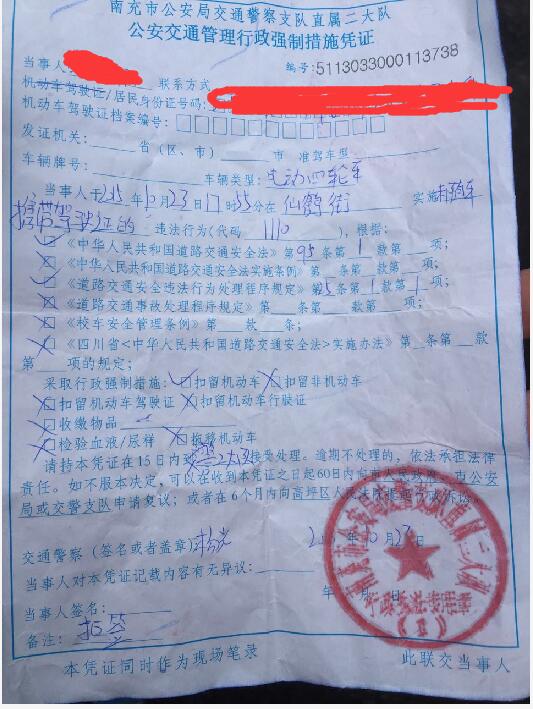 南充市公安局交通警察支队直属二大队
公安交通管理行政强制措施凭证
编号:5113033000113738
当事人 联系方式
机动车驾驶证/居民身份证号码:
机动车驾驶证档案编号:□□□□□□□□□□□□
发证机关: 省(区、市) 市 准驾车型
车辆牌号: 车辆类型:电动四轮车
当事人于2015年10月23日17时55分在仙鹤街 实施
携带驾驶证的 违法行为(代码 1110 ),根据:
□《中华人民共和国道路交通安全法》第95条第1款第 项;
□《中华人民共和国道路交通安全法实施条例》第 条第 款第 项;
□《道路交通安全违法行为处理程序规定》第 条第1款第1项;
□《道路交通事故处理程序规定》第 条第 款第 项;
□《校车安全管理条例》第 款 条;
□《四川省<中华人民共和国道路交通安全法>实施办法》第 条第 款
第 项的规定;
采取行政强制措施:□扣留机动车 □扣留非机动车
□扣留机动车驾驶证 □扣留机动车行驶证
□收缴物品
□检验血液/尿样 □拖移机动车
请持本凭证在15日内到 接受处理。逾期不处理的,依法承担法律
责任。如不服本决定,可以在收到本凭证之日起60日内向市人民政府、市公安
局或交警支队申请复议;或者在6个月内向高坪区人民法院提起行政诉讼。
交通警察(签名或者盖章) 10月23日
当事人对本凭证记载内容有无异议: 年
当事人签名:
备注:拒签
本凭证同时作为现场笔录 此联交当事人